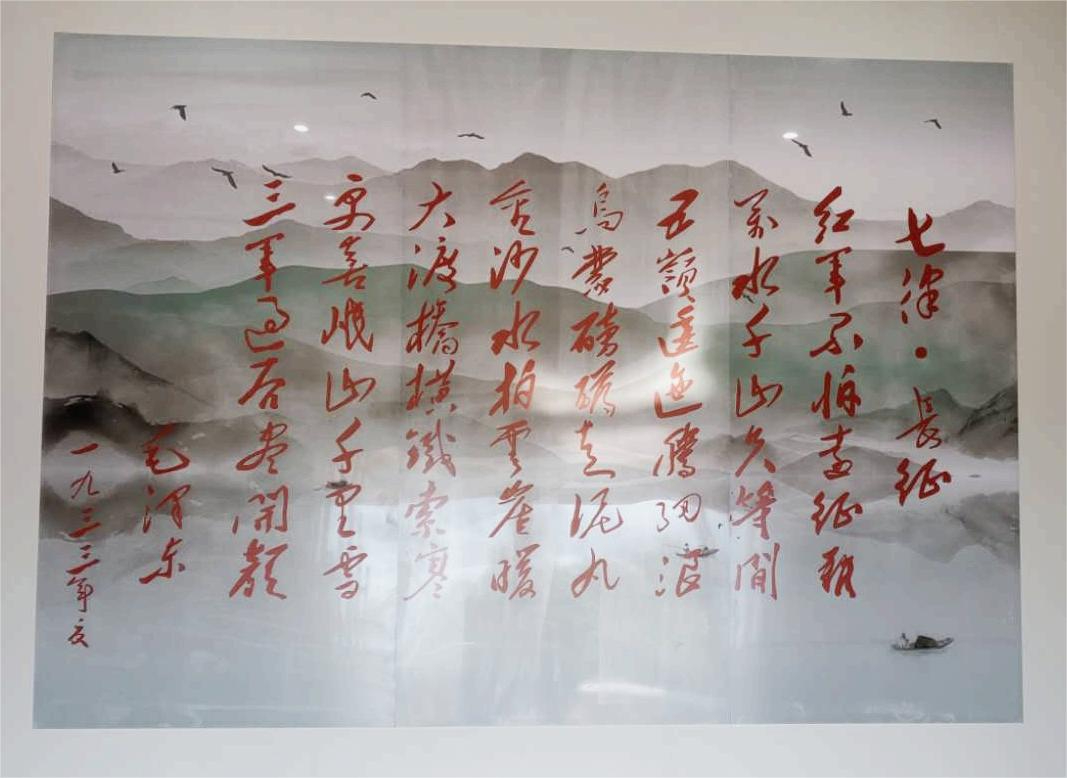 七律·長征
红军不怕遠征難
萬水千山只等閒
五嶺逶迤騰细浪
烏蒙磅礴走泥丸
金沙水拍雲崖暖
大渡橋横鐵索寒
更喜岷山千里雪
三军过后尽開顏
毛澤东
一九三三年